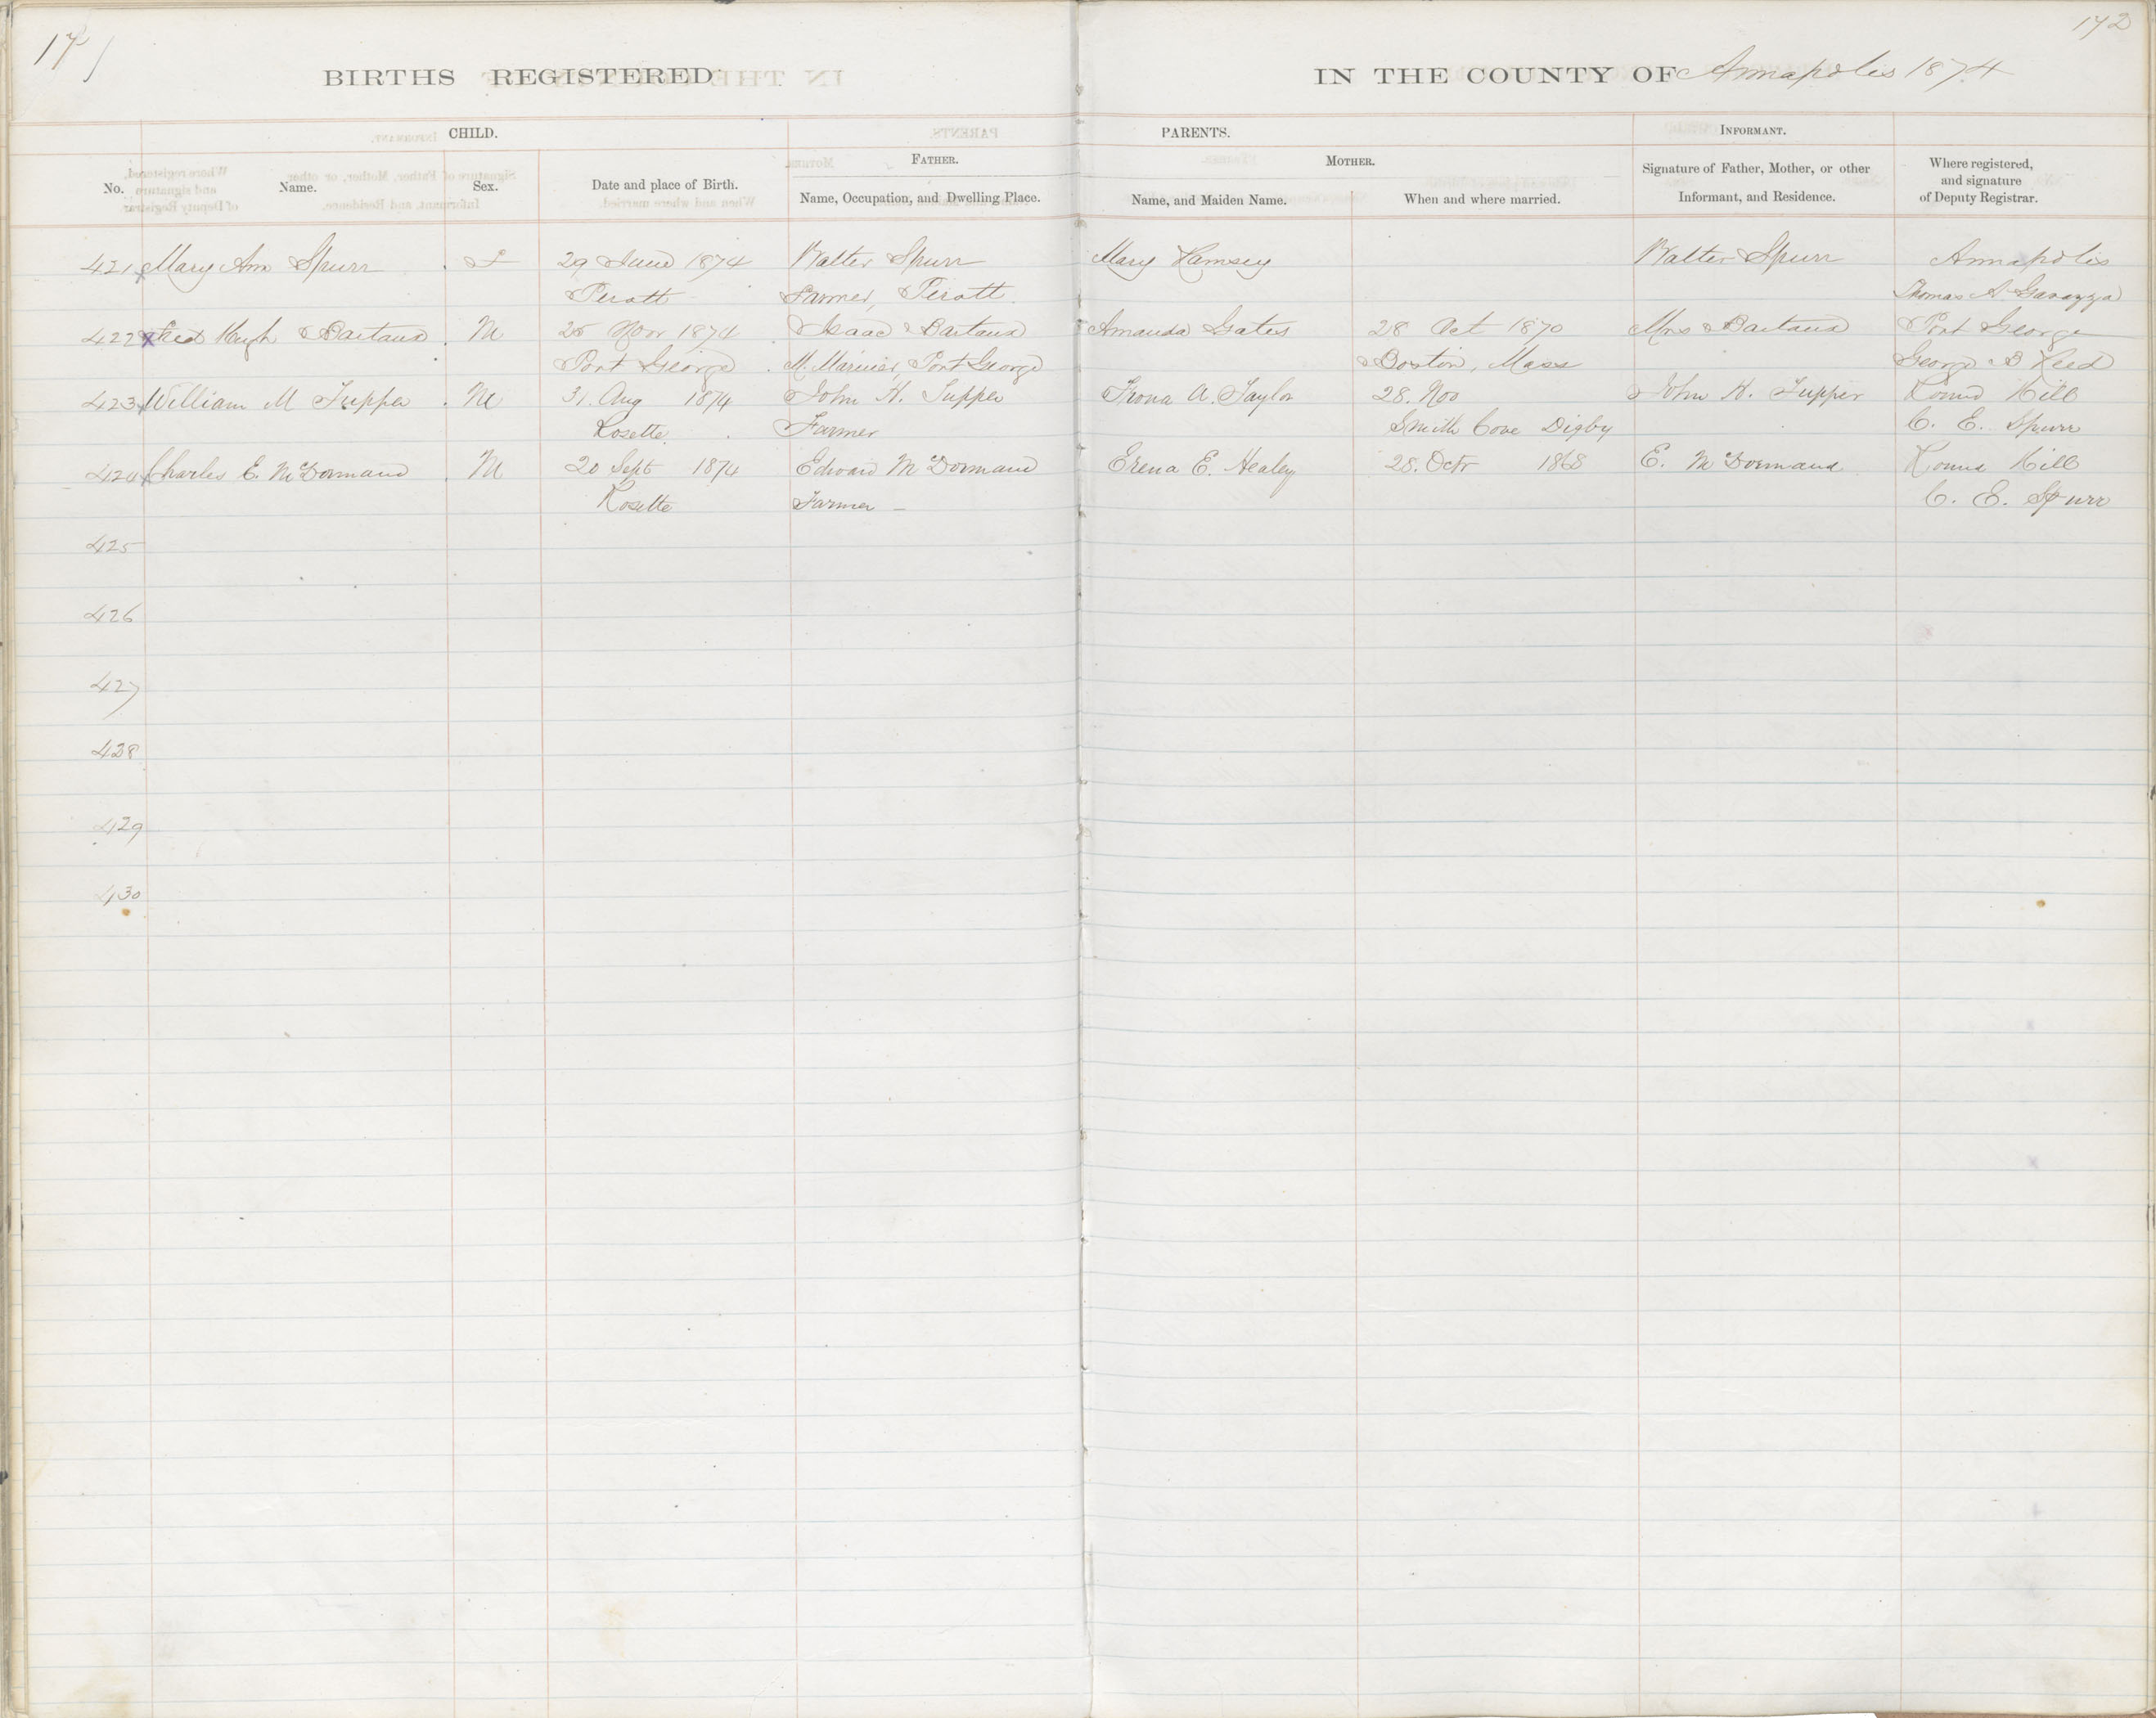 171
172
BIRTHS REGISTERED
IN THE COUNTY OF Annapolis 1874
CHILD.
PARENTS.
INFORMANT.
FATHER.
MOTHER.
No.
Name.
Sex.
Date and place of Birth.
Name, Occupation, and Dwelling Place.
Name, and Maiden Name.
When and where married.
Signature of Father, Mother, or other Informant, and Residence.
Where registered, and signature of Deputy Registrar.
421 Mary Ann Spurr F 29 June 1874 Walter Spurr Mary Ramsey Walter Spurr Annapolis
Perott Farmer, Perott Thomas A. Gavazza
422 Fred Hugh Bartaux M 25 Novr 1874 Isaac Bartaux Amanda Gates 28 Oct 1870 Mrs Bartaux Port George
Port George M. Mariner, Port George Boston, Mass George B Reed
423 William M Tupper M 31. Aug 1874 John H. Tupper A. Taylor 28. Nov John H. Tupper Round Hill
Rosette Farmer Smith Cove Digby C. E. Spurr
424 Charles E. McDormand M 20 Sept 1874 Edward McDormand Erena E. Healey 28. Octr 1868 E. McDormand Round Hill
Rosette Farmer C. E. Spurr
425
426
427
428
429
430